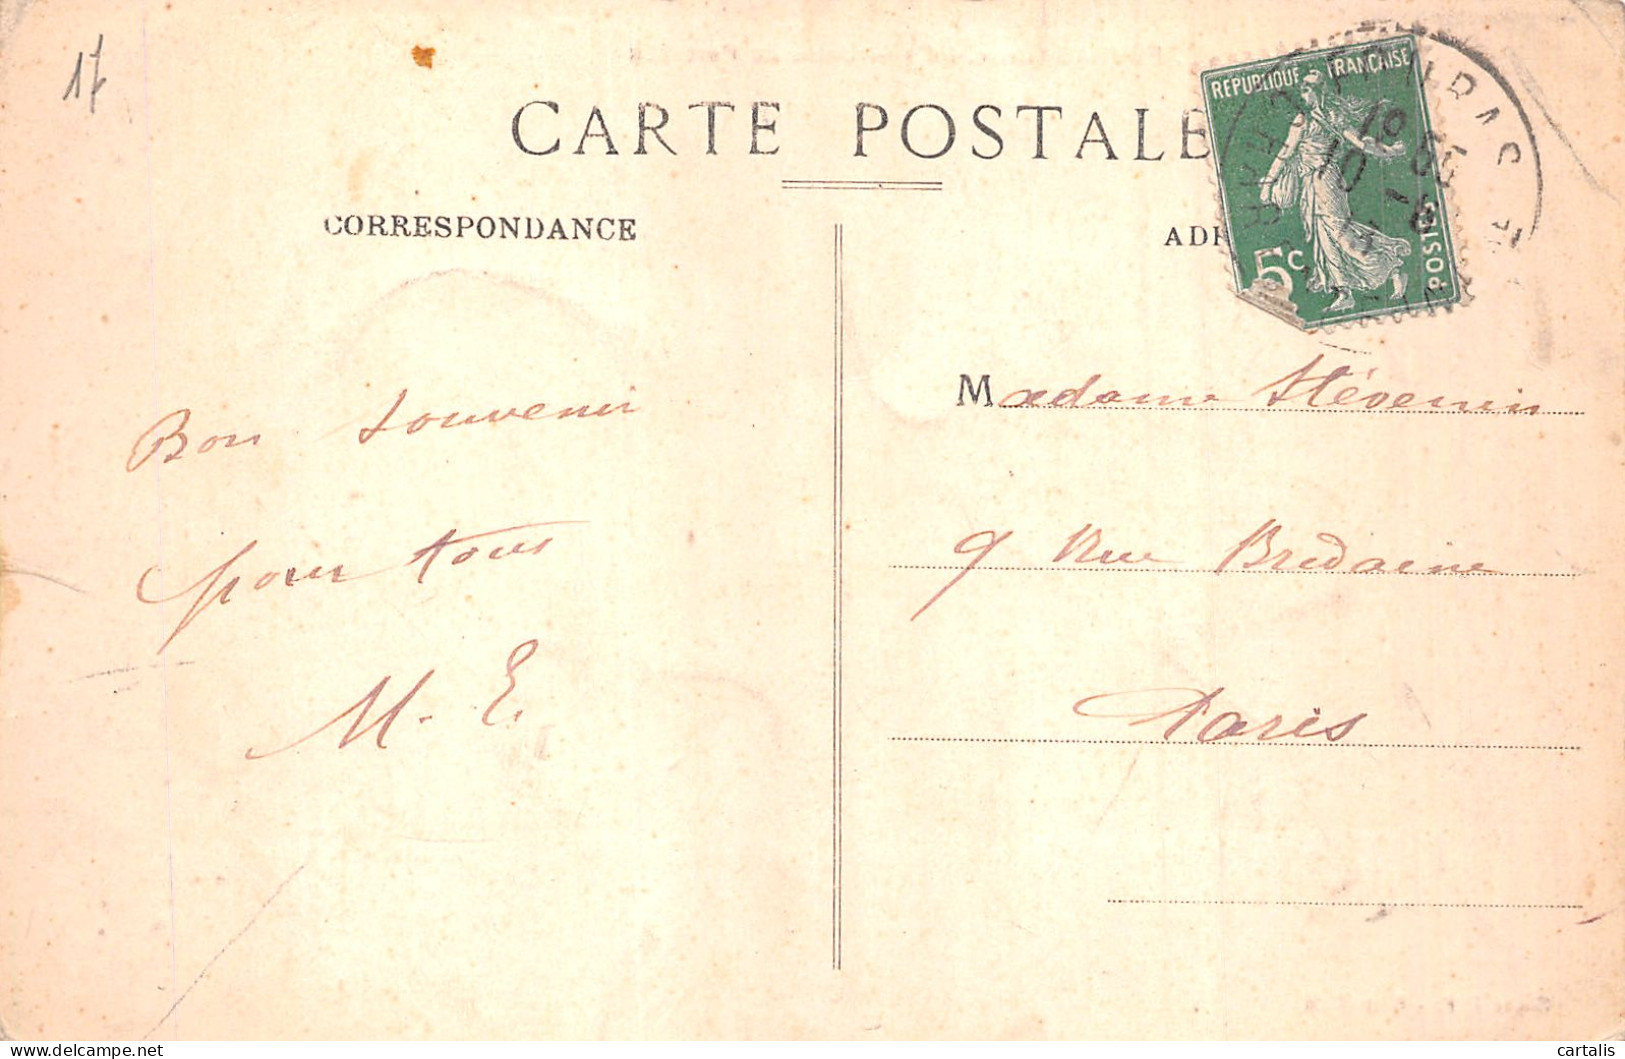 17
CARTE POSTALE
CORRESPONDANCE
REPUBLIQUE FRANÇAISE
5c
POSTES
Bon souvenir
pour tous
M. E.
Madame Stévenin
9 Rue Bridaine
Paris
cartalis